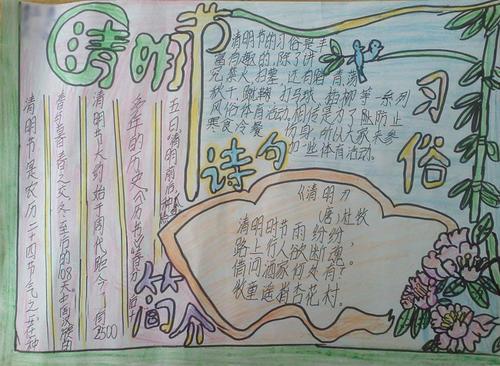 清明节
清明节的习俗是丰
富有趣的,除了讲
究禁火、扫墓,还有踏青、荡
秋千、蹴鞠、打马球、插柳等一系列
风俗体育活动。相传是为了防止
寒食冷餐伤身,所以大家来参
加一些体育活动。
习俗
诗句
《清明》
(唐)杜牧
清明时节雨纷纷,
路上行人欲断魂。
借问酒家何处有?
牧童遥指杏花村。
简介
清明节是农历二十四节气之一,在仲
春与暮春之交,冬至后的108天。中国汉族的
清明节大约始于周代,距今
2500
多年的历史。《历书》:春分后十
五日,